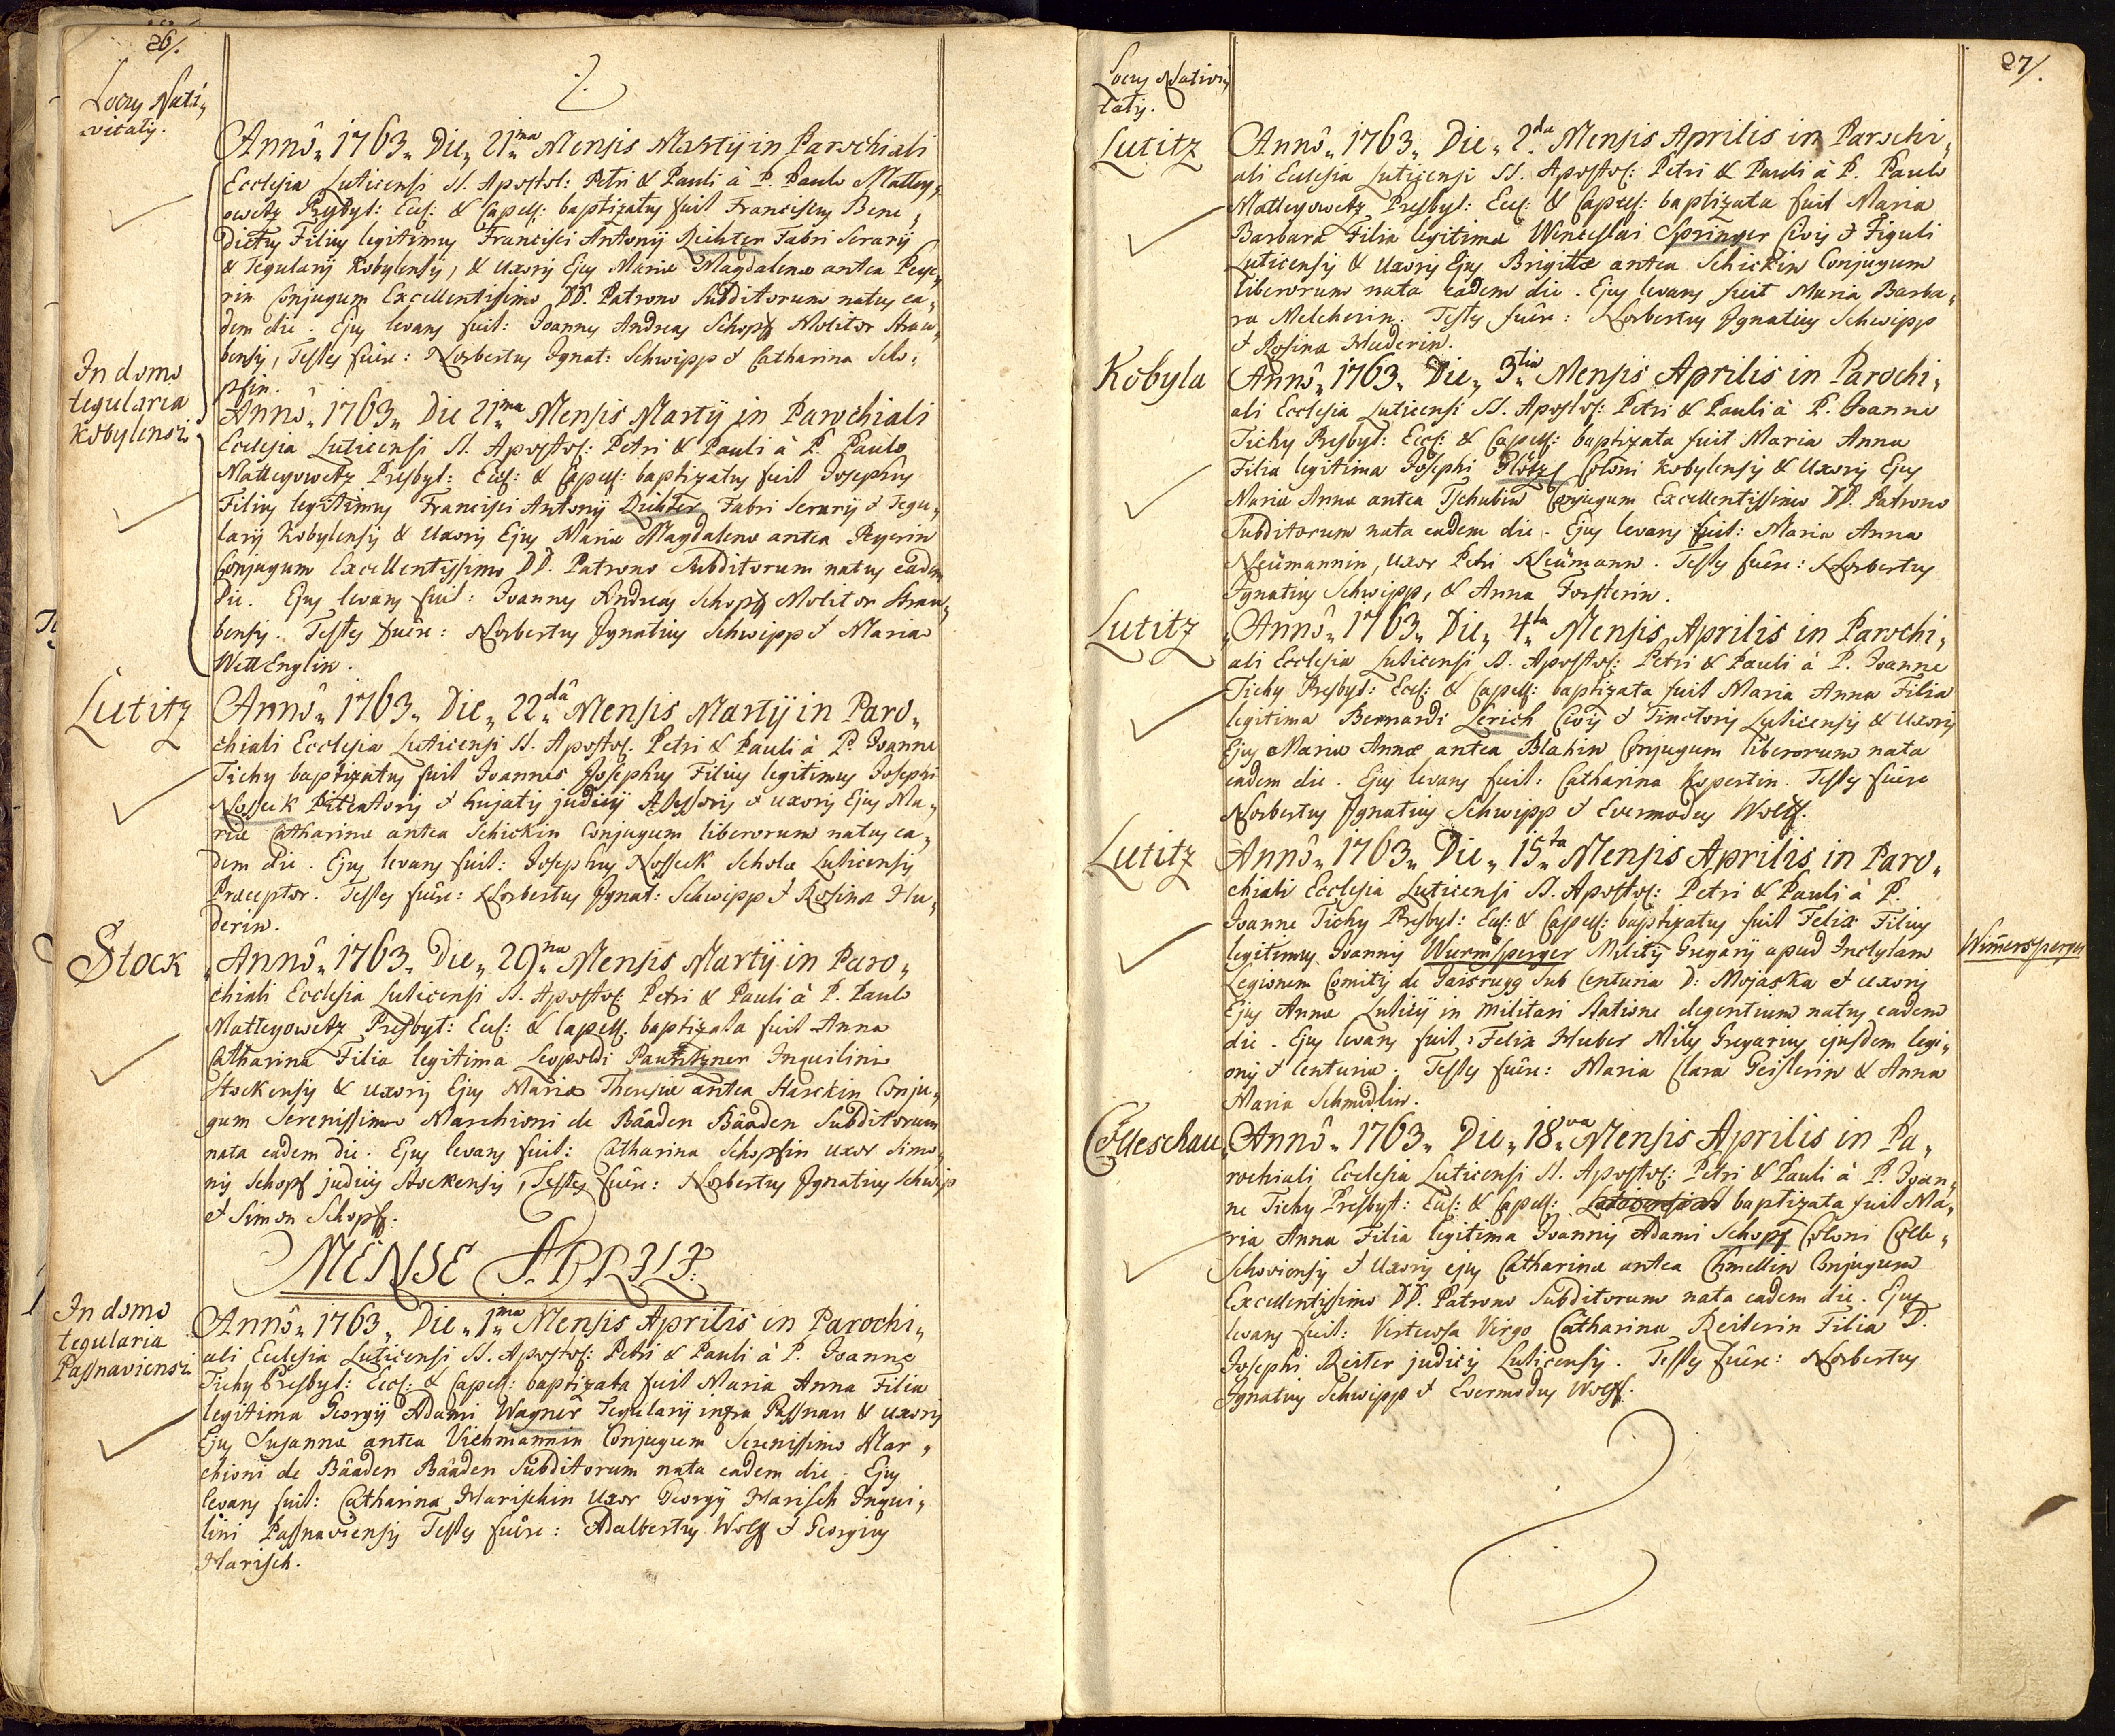 26/.
Locus Nati„
vitatis.
Anno„ 1763„ Die„ 21„ma Mensis Martij in Parochiali
Ecclesia Luticensi SS. Apostol: Petri & Pauli à P. Paulo Mattey„
owetz Presbyt: Eccl: & Capell: baptizatus fuit Franciscus Bene„
dictus Filius legitimus Francisci Antonij Richter Fabri Serarij
& Tegularij Kobylensis, & Uxoris Ejus Mariæ Magdalenæ antea Peye„
rin Conjugum Excellentissimo DD. Patrono Subditorum natus ea„
dem die. Ejus levans fuit: Joannes Andreas Schopf Molitor Strau„
bensis, Testes fuêre: Norbertus Ignat: Schwipp & Catharina Scho„
pfin.
In domo
tegularia
Kobylensi
Anno„ 1763„ Die 21„ma Mensis Martij in Parochiali
Ecclesia Luticensi SS. Apostol: Petri & Pauli à P. Paulo
Matteyowetz Presbyt: Eccl: & Capell: baptizatus fuit Josephus
Filius legitimus Francisci Antonij Richter Fabri Serarij & Tegu„
larij Kobylensis & Uxoris Ejus Mariæ Magdalenæ antea Peyerin
Conjugum Excellentissimo DD. Patrono Subditorum natus eadem
die. Ejus levans fuit: Joannes Andreas Schopf Molitor Strau„
bensis. Testes fuêre: Norbertus Ignatius Schwipp & Maria
WettEnglin.
Lutitz
Anno„ 1763„ Die„ 22„da Mensis Martij in Paro„
chiali Ecclesia Luticensi SS. Apostol. Petri & Pauli à P. Joanne
Tichy baptizatus fuit Joannes Josephus Filius legitimus Josephi
Nosseck & hujatis judicij Assessoris & uxoris Ejus Ma„
riæ Catharinæ antea Schickin Conjugum liberorum natus ea„
dem die. Ejus levans fuit: Josephus Nosseck Scholæ Luticensis
Præceptor. Testes fuêre: Norbertus Ignat: Schwipp & Rosina Hu„
derin.
Stock
Anno„ 1763„ Die„ 29„na Mensis Martij in Paro„
chiali Ecclesia Luticensi SS. Apostol: Petri & Pauli à P. Paulo
Matteyowetz Presbyt: Eccl: & Capell. baptizata fuit Anna
Catharina Filia legitima Leopoldi Pautitzner Inquilini
Stockensis & uxoris Ejus Mariæ Theresiæ antea Starckin Conju„
gum Serenissimo Marchioni de Bâaden Bâaden Subditorum
nata eadem die. Ejus levans fuit: Catharina Schopfin uxor Simo„
nis Schopf judicis Stockensis, Testes fuêre: Norbertus Ignatius Schwipp
& Simon Schopf.
MENSE APRILI:
In domo
tegularia
Passnaviensi
Anno„ 1763„ Die„ 1„ma Mensis Aprilis in Parochi„
ali Ecclesia Luticensi SS. Apostol: Petri & Pauli à P. Joanne
Tichy Presbyt: Eccl: & Capell: baptizata fuit Maria Anna Filia
legitima Georgij Adami Wagner Tegularij infra Passnau & uxoris
Ejus Susannæ antea Viehmannin Conjugum Serenissimo Mar„
chioni de Bâaden Bâaden Subditorum nata eadem die. Ejus
levans fuit: Catharina Harischin Uxor Georgij Harisch Inqui„
lini Passnaviensis Testes fuêre: Adalbertus Wolf & Georgius
Harisch.
27/.
Locus Nativi„
tatis.
Lutitz
Anno„ 1763„ Die„ 2„da Mensis Aprilis in Parochi„
ali Ecclesia Luticensi SS. Apostol: Petri & Pauli à P. Paulo
Matteyowetz Presbyt: Eccl: & Capell: baptizata fuit Maria
Barbara Filia legitima Wenceslai Springer Civis & Figuli
Luticensis & Uxoris Ejus Brigittæ antea Schickin Conjugum
liberorum nata eadem die. Ejus levans fuit Maria Barba„
ra Melcherin. Testes fuêre: Norbertus Ignatius Schwipp
& Rosina Huderin.
Kobyla
Anno„ 1763„ Die„ 3„tia Mensis Aprilis in Parochi„
ali Ecclesia Luticensi SS. Apostol: Petri & Pauli à P. Joanne
Tichy Presbyt: Eccl: & Capell: baptizata fuit Maria Anna
Filia legitima Josephi Glötzl Coloni Kobylensis & Uxoris Ejus
Mariæ Annæ antea Tschubin Conjugum Excellentissimo DD. Patrono
Subditorum nata eadem die. Ejus levans fuit: Maria Anna
Neümannin, uxor Petri Neümann. Testes fuêre: Norbertus
Ignatius Schwipp, & Anna Forsterin.
Lutitz
Anno„ 1763„ Die„ 4„ta Mensis Aprilis in Parochi„
ali Ecclesia Luticensi SS. Apostol: Petri & Pauli à P. Joanne
Tichy Presbyt: Eccl: & Capell: baptizata fuit Maria Anna Filia
legitima Bernardi Lerich Civis & Tinctoris Luticensis & Uxoris
Ejus Mariæ Annæ antea Blahin Conjugum liberorum nata
eadem die. Ejus levans fuit: Catharina Kopertin. Testes fuêre
Norbertus Ignatius Schwipp & Evermodus Wolff.
Lutitz
Anno„ 1763„ Die„ 15„ta Mensis Aprilis in Paro„
chiali Ecclesia Luticensi SS. Apostol: Petri & Pauli à P.
Joanne Tichy Presbyt: Eccl: & Capell: baptizatus fuit Felix Filius
legitimus Joannis Wurmsperger Militis Gregarij apud Inclytam
Wimersperger
Legionem Comitis de Jaisrugg sub Centuria D: Mojaska & uxoris
Ejus Annæ Luticij in militari statione degentium natus eadem
die. Ejus levans fuit: Felix Huber Miles Gregarius ejusdem legi„
onis & Centuriæ. Testes fuêre: Maria Clara Geislerin & Anna
Maria Schmidlin.
Colleschau
Anno„ 1763„ Die„ 18„va Mensis Aprilis in Pa„
rochiali Ecclesia Luticensi SS. Apostol: Petri & Pauli à P. Joan„
ne Tichy Presbyt: Eccl: & Capell: baptizata fuit Ma„
ria Anna Filia legitima Joannis Adami Schopf Coloni Colle„
schoviensis & Uxoris ejus Catharinæ antea Chmellin Conjugum
Excellentissimo DD. Patrono Subditorum nata eadem die. Ejus
levans fuit: Virtuosa Virgo Catharina Reiterin Filia D.
Josephi Reiter judicis Luticensis. Testes fuêre: Norbertus
Ignatius Schwipp & Evermodus Wolff.